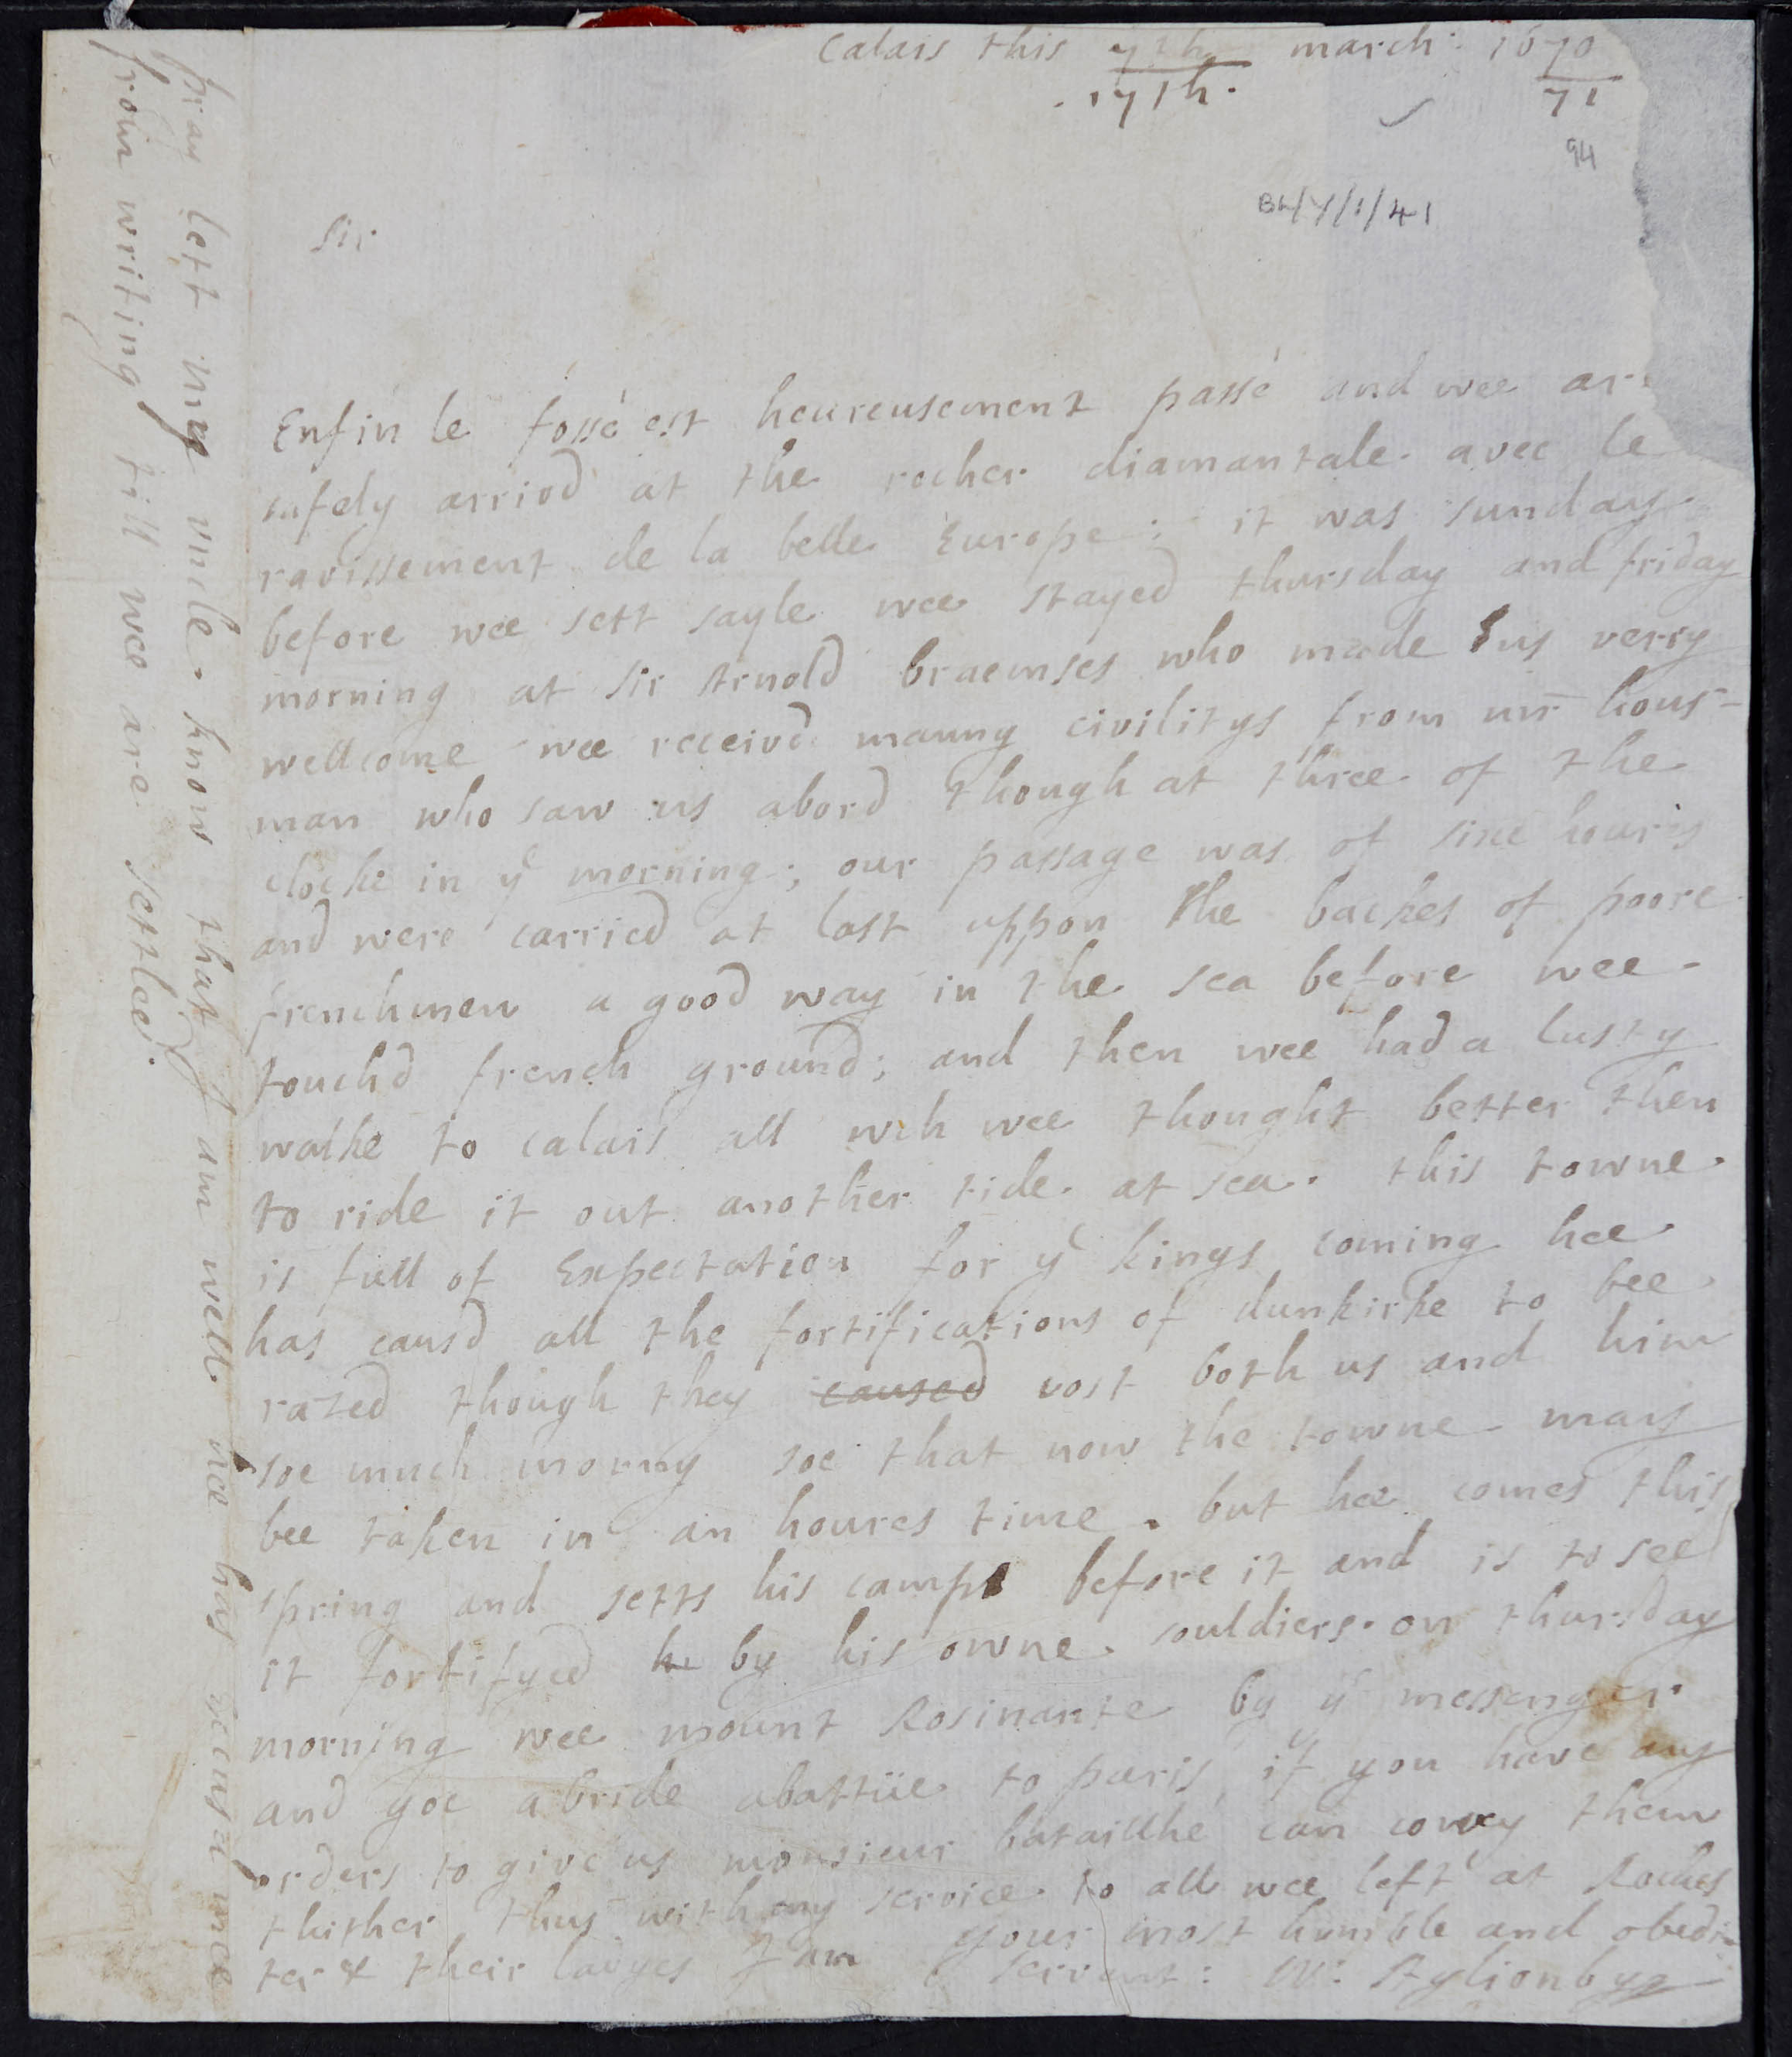 Calais this 7th march: 1670
17th. 71
94
BL/Y/1/41
Sir
Enfin le fossé est heureusement passé and wee are
safely arrivd at the rocher diamantale avec le
ravissement de la belle Europe; it was sunday
before wee sett sayle wee stayed thursday and friday
morning at Sir Arnold braemses who made us verry
wellcome wee receivd manny civilitys from mr hous-
man who saw us abord though at three of the
clocke in ye morning; our passage was of sixe houres
and were carried at last uppon the backes of poore
frenchmen a good way in the sea before wee
touchd french ground; and then wee had a lusty
walke to calais all wch wee thought better then
to ride it out another tide at sea. this towne
is full of Expectation for ye kings coming hee
has causd all the fortifications of dunkirke to bee
rased though they caused cost both us and him
soe much monny soe that now the towne may
bee taken in an houres time. but hee comes this
spring and setts his camps before it and is to see
it fortifyed he by his owne souldiers. on thursday
morning wee mount Rosinante by ye messenger
and goe a bride abattüe to paris if you have any
orders to give us monsieur bataillhé can convey them
thither thus with my service to all wee left at Roches
ter & their ladyes I am your most humble and obedi-
servant: W: Aglionbyg
pray lett my uncle know that I am well hee has excusd mee
from writing till wee are settled.